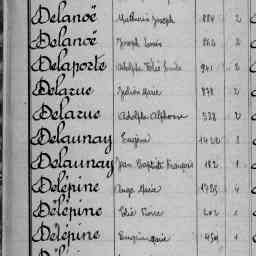 Delanoë Mathurin Joseph 884 2
Delanoë Joseph Louis 2
Delaporte Adolphe Félix Emile 941 2
Delarue Julien Marie 878 2
Delarue Adolphe Alphonse 528 2
Delaunay Eugène
Delaunay Jean Baptiste François 182 1
Delépine Ange Marie 4
Delépine Pierre 202
Delépine Eugène Marie 1